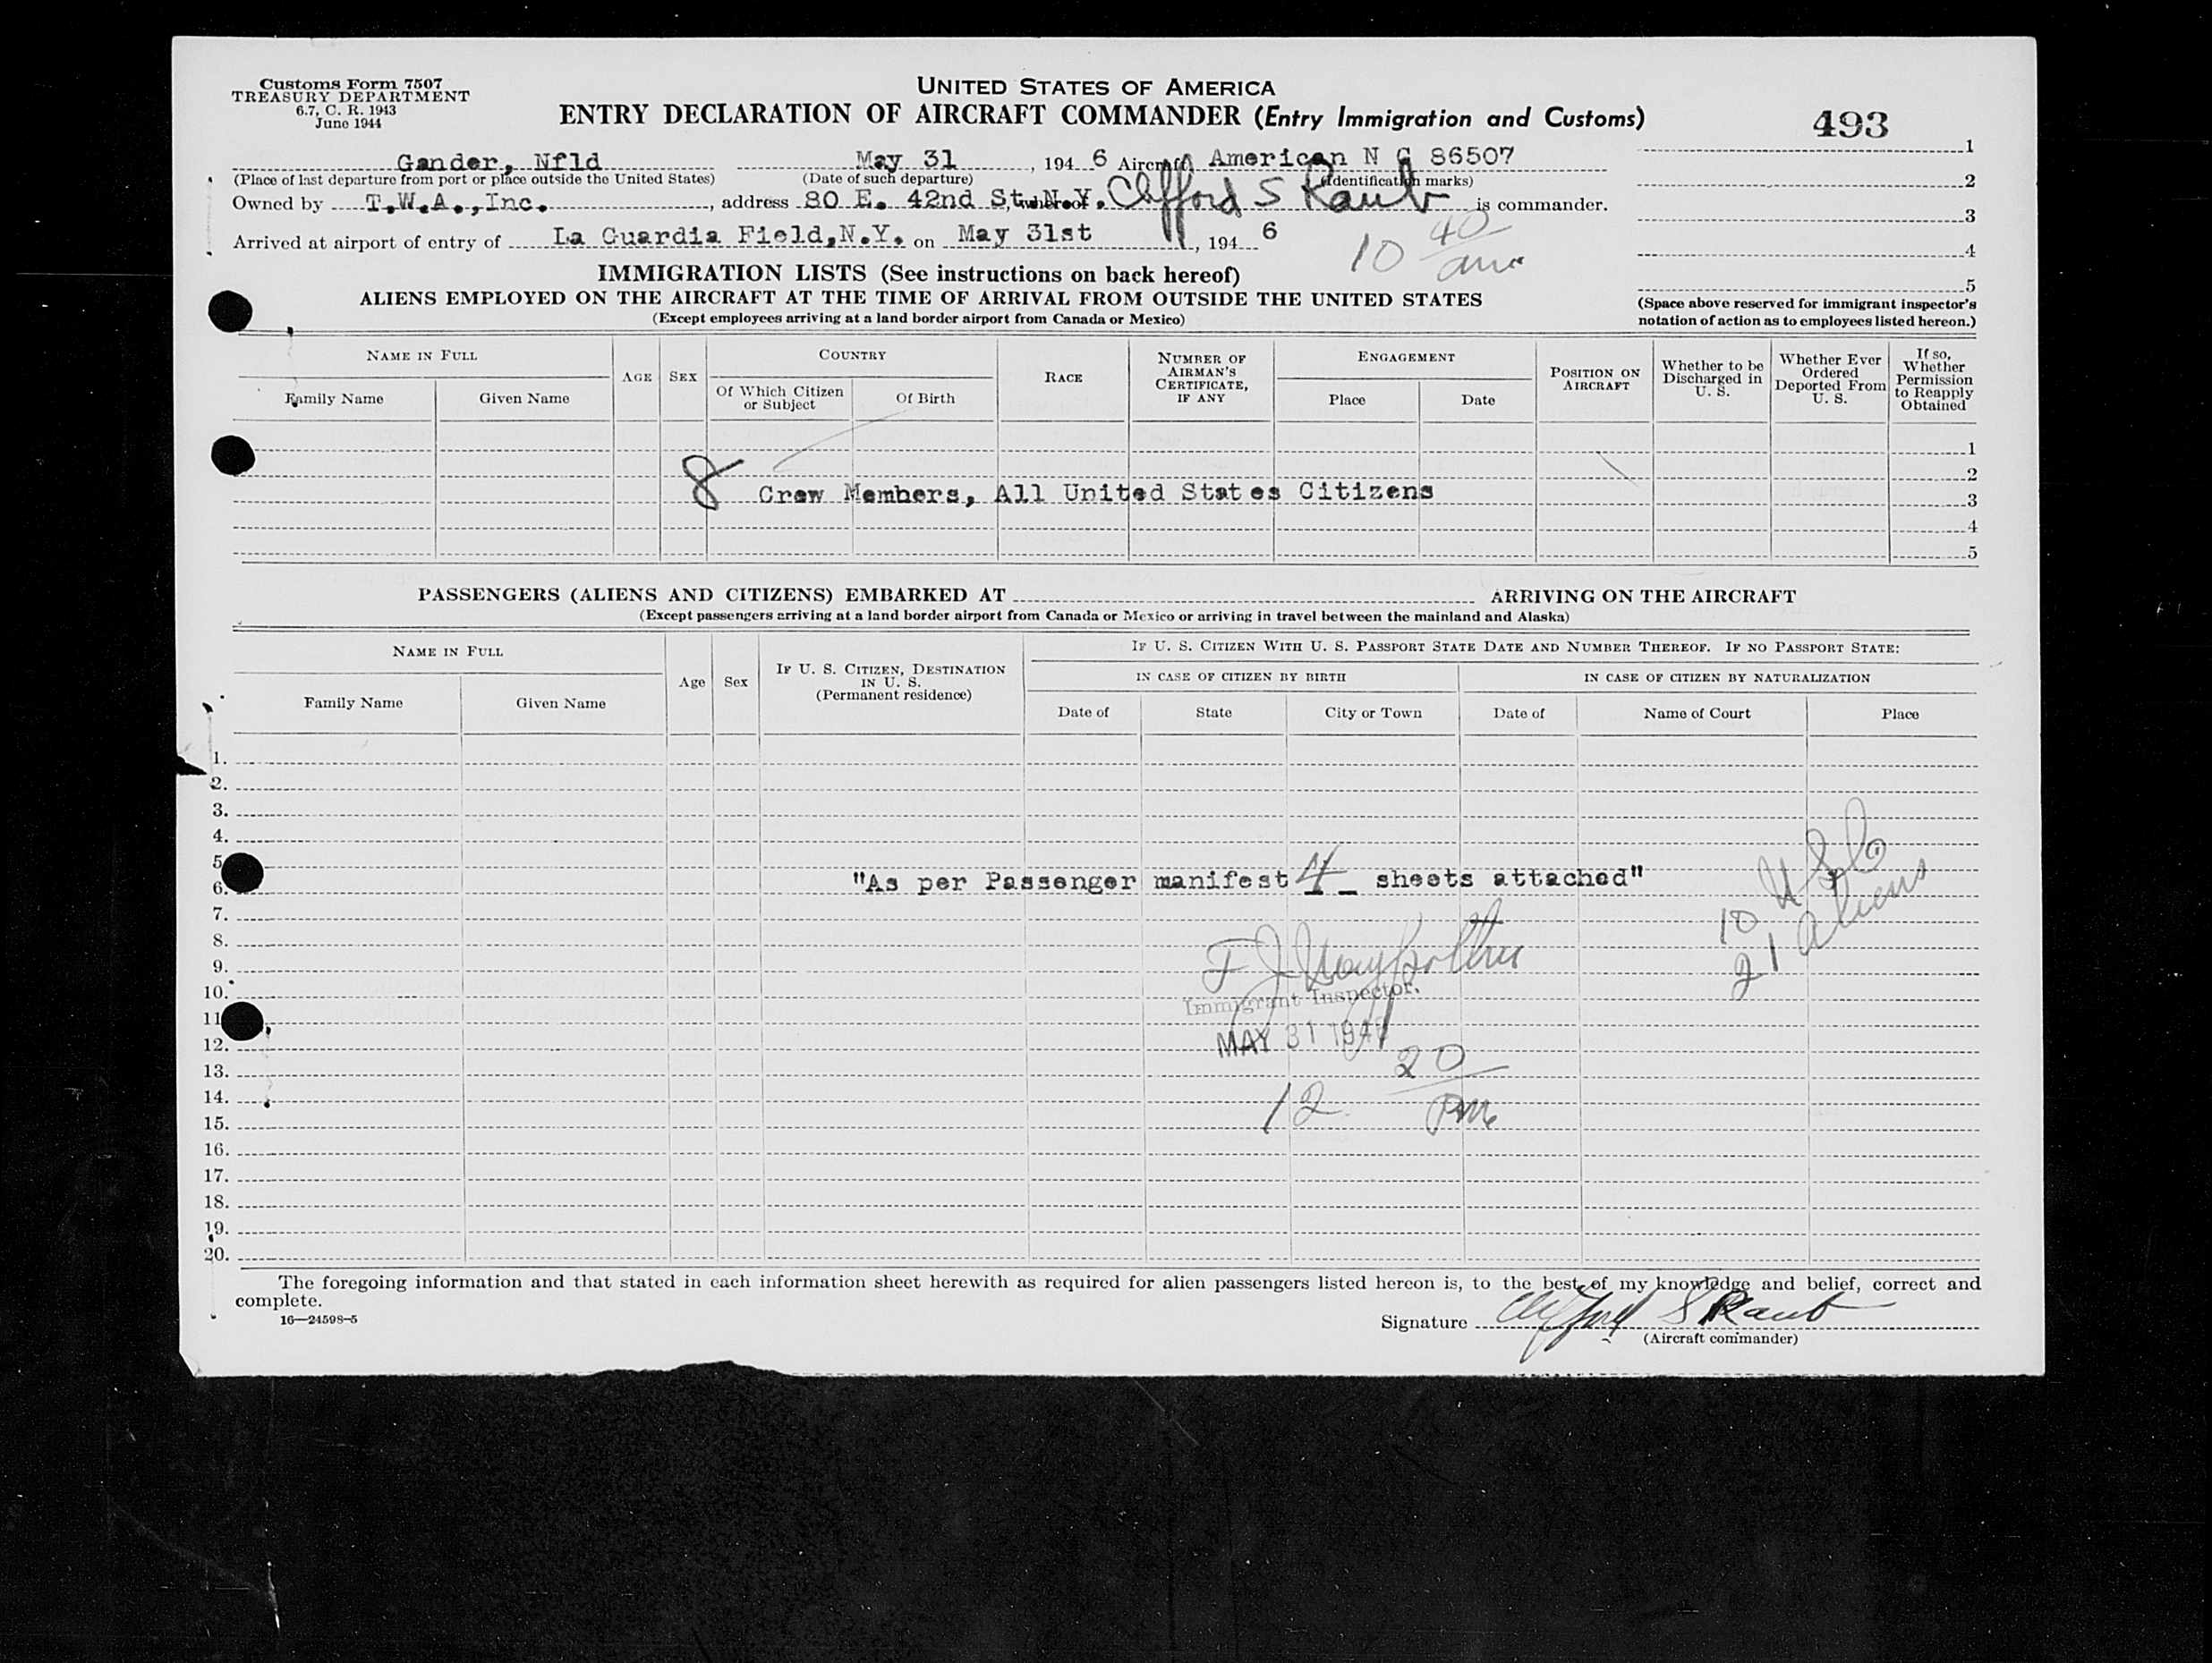 Customs Form 7507
TREASURY DEPARTMENT
6.7, C. R. 1943
June 1944
UNITED STATES OF AMERICA
ENTRY DECLARATION OF AIRCRAFT COMMANDER (Entry Immigration and Customs)
493
Gander, Nfld May 31, 1946 Aircraft American N C 86507
(Place of last departure from port or place outside the United States) (Date of such departure) (Identification marks)
Owned by T.W.A., Inc., address 80 E. 42nd St., N.Y. whereof Clifford S Raub is commander.
Arrived at airport of entry of La Guardia Field, N.Y. on May 31st, 1946
10 40 am
1
2
3
4
5
(Space above reserved for immigrant inspector's
notation of action as to employees listed hereon.)
IMMIGRATION LISTS (See instructions on back hereof)
ALIENS EMPLOYED ON THE AIRCRAFT AT THE TIME OF ARRIVAL FROM OUTSIDE THE UNITED STATES
(Except employees arriving at a land border airport from Canada or Mexico)
NAME IN FULL
Family Name
Given Name
AGE
SEX
COUNTRY
Of Which Citizen
or Subject
Of Birth
RACE
NUMBER OF
AIRMAN'S
CERTIFICATE,
IF ANY
ENGAGEMENT
Place
Date
POSITION ON
AIRCRAFT
Whether to be
Discharged in
U. S.
Whether Ever
Ordered
Deported From
U. S.
If so,
Whether
Permission
to Reapply
Obtained
1
2
8 Crew Members, All United States Citizens
3
4
5
PASSENGERS (ALIENS AND CITIZENS) EMBARKED AT ARRIVING ON THE AIRCRAFT
(Except passengers arriving at a land border airport from Canada or Mexico or arriving in travel between the mainland and Alaska)
NAME IN FULL
Family Name
Given Name
Age
Sex
IF U. S. CITIZEN, DESTINATION
IN U. S.
(Permanent residence)
IF U. S. CITIZEN WITH U. S. PASSPORT STATE DATE AND NUMBER THEREOF. IF NO PASSPORT STATE:
IN CASE OF CITIZEN BY BIRTH
Date of
State
City or Town
IN CASE OF CITIZEN BY NATURALIZATION
Date of
Name of Court
Place
1.
2.
3.
4.
5
6.
"As per Passenger manifest 4 sheets attached"
10 USC
21 aliens
7.
8.
9.
10.
Immigrant Inspector.
11
12.
MAY 31 194
13.
14.
12 20 PM
15.
16.
17.
18.
19.
20.
The foregoing information and that stated in each information sheet herewith as required for alien passengers listed hereon is, to the best of my knowledge and belief, correct and
complete.
16—24598-5
Signature Clifford S Raub
(Aircraft commander)